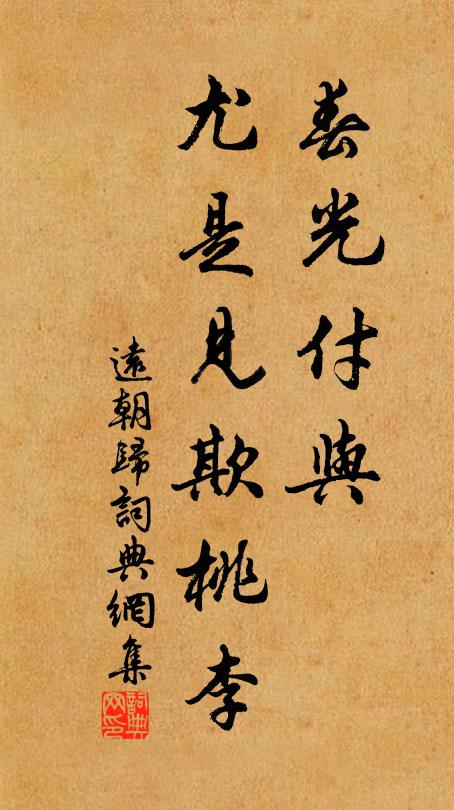 春光付與
尤是見欺桃李
遠朝歸詞典網集
詞典
網印